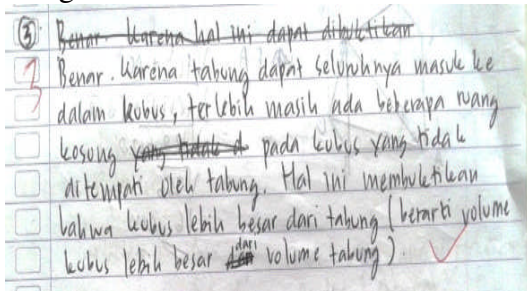 ③ Benar. Karena hal ini dapat dibuktikan
3 Benar. Karena tabung dapat seluruhnya masuk ke
dalam kubus, terlebih masih ada beberapa ruang
kosong yang tidak d pada kubus yang tidak
ditempati oleh tabung. Hal ini membuktikan
bahwa kubus lebih besar dari tabung (berarti volume
kubus lebih besar dari volume tabung).